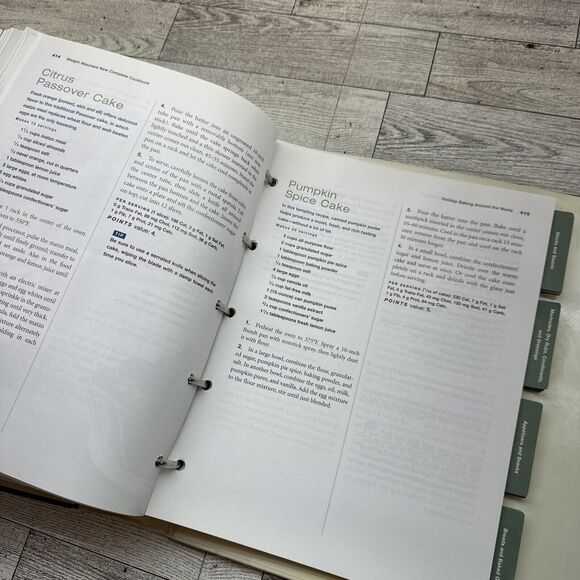 414
Weight Watchers New Complete Cookbook
Citrus
Passover Cake
Fresh orange (pureed, skin and all) offers delicious
flavor to this traditional Passover cake, in which
matzo meal replaces wheat flour and well-beaten
eggs are the only leavening.
Makes 12 servings
cups matzo meal
cup sliced almonds
teaspoon salt
navel orange, cut in quarters
1 tablespoon lemon juice
5 large eggs, at room temperature
egg whites
cups granulated sugar
tablespoons confectioners' sugar
rack in the center of the oven.
to 350°F.
processor, pulse the matzo meal,
and finely ground, transfer to
set aside. Also in the food
orange and lemon juice until
with an electric mixer at
eggs and egg whites until
sprinkle in the granu-
ting until very thick,
fold the matzo
mixture alternately
folding in each
4. Pour the batter into an ungreased 10-inch
tube pan with a removable bottom. (not
stick). Bake until the cake springs back when
lightly touched and a thin skewer inserted in the
center comes out clean, 45–55 minutes. Invert the
pan on a rack and let the cake cool completely in
the pan.
5. To serve, carefully loosen the cake from sides
of the pan with a metal spatula. Lift
the center tube, then slide a knife all around
between the pan bottom and the cake. Invert the
cake onto a plate and sift the confectioners' sugar
on top, cut into 12 slices.
PER SERVING (1 slice): 198 Cal, 5 g Fat, 1 g Sat
Fat, 0 g Trans Fat, 89 mg Chol, 112 mg Sod, 36 g Carb,
1 g Fib, 5 g Prot, 29 mg Calc.
POINTS value: 4.
TIP
Be sure to use a serrated knife when slicing the
cake, wiping the blade with a damp towel each
time you slice.
Holiday Baking Around the World
415
Pumpkin
Spice Cake
In this tempting recipe, canned pumpkin puree
helps produce a moist, fresh, and rich-tasting
cake—without a lot of fat.
Makes 16 servings
3 cups all-purpose flour
2 cups granulated sugar
1 tablespoon pumpkin pie spice
1 tablespoon baking powder
½ teaspoon salt
4 large eggs
½ cup canola oil
½ cup fat-free milk
1 (15-ounce) can pumpkin puree
2 teaspoons vanilla extract
½ cup confectioners' sugar
1½ tablespoons fresh lemon juice
1. Preheat the oven to 375°F. Spray a 10-inch
Bundt pan with nonstick spray, then lightly dust
it with flour.
2. In a large bowl, combine the flour, granulat-
ed sugar, pumpkin pie spice, baking powder, and
salt. In another bowl, combine the eggs, oil, milk,
pumpkin puree, and vanilla. Add the egg mixture
to the flour mixture; stir until just blended.
3. Pour the batter into the pan. Bake until a
toothpick inserted in the center comes out clean,
55–60 minutes. Cool in the pan on a rack 15 min-
utes; remove from the pan and cool on the rack
completely.
4. In a small bowl, combine the confectioners'
sugar and lemon juice. Drizzle over the warm
cake and serve at once. Or cool the cake com-
pletely on a rack and drizzle with the glaze just
before serving.
PER SERVING (1/16 of cake): 230 Cal, 7 g Fat, 1 g Sat
Fat, 0 g Trans Fat, 43 mg Chol, 120 mg Sod, 41 g Carb,
1 g Fib, 4 g Prot, 64 mg Calc.
POINTS value: 5.
Stocks and Sauces
Marinades, Dry Rubs, Condiments,
and Dressings
Appetizers and Snacks
Breads and Baked